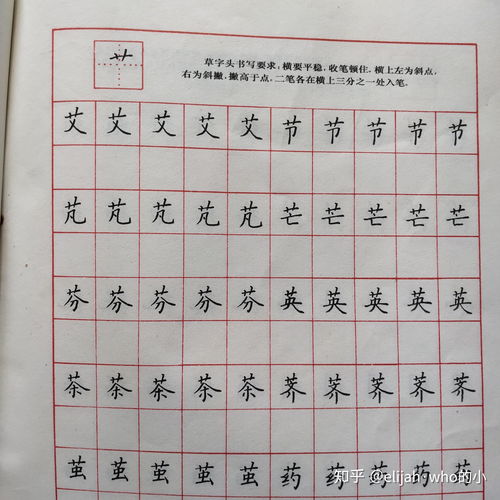 艹
草字头书写要求，横要平稳，收笔顿住，横上左为斜点，
右为斜撇，撇高于点，二笔各在横上三分之一处入笔。
艾艾艾艾艾节节节节节
芃芃芃芃芃芒芒芒芒芒
芬芬芬芬芬英英英英英
茶茶茶茶茶荞荞荞荞荞
茧茧茧茧茧药药药药药
知乎 @elijah_who的小